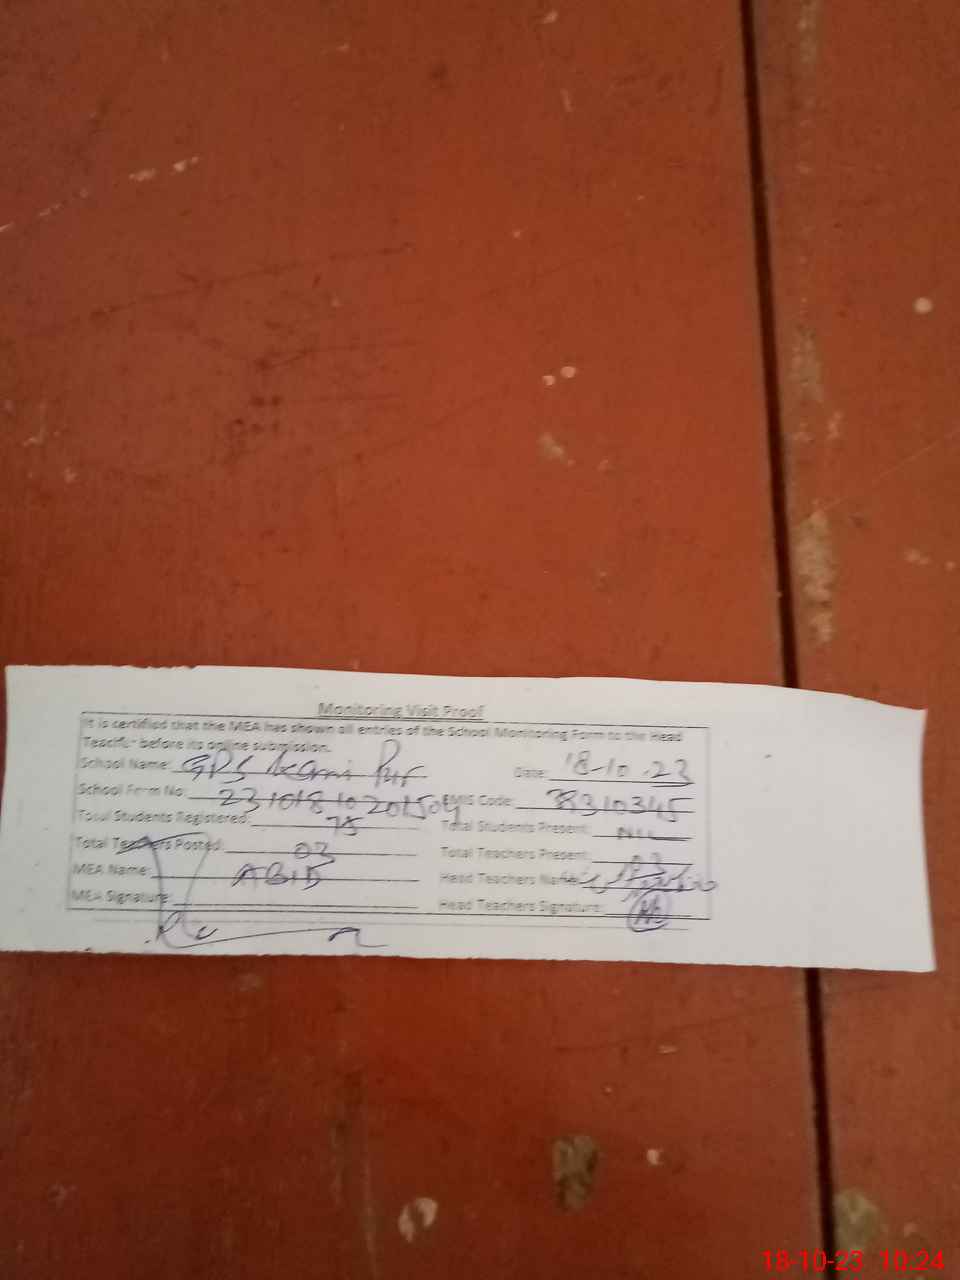 Monitoring Visit Proof
It is certified that the MEA has shown all entries of the School Monitoring Form to the Head
Teacher before its online submission.
School Name: GPS Karmi Pur Date: 18-10-23
School Form No: EMIS Code: 38310345
Total Students Registered: 75 Total Students Present: NIL
Total Teachers Posted: 03 Total Teachers Present: 03
MEA Name: ABID Head Teachers Name:
MEA Signature: Head Teachers Signature:
18-10-23 10:24